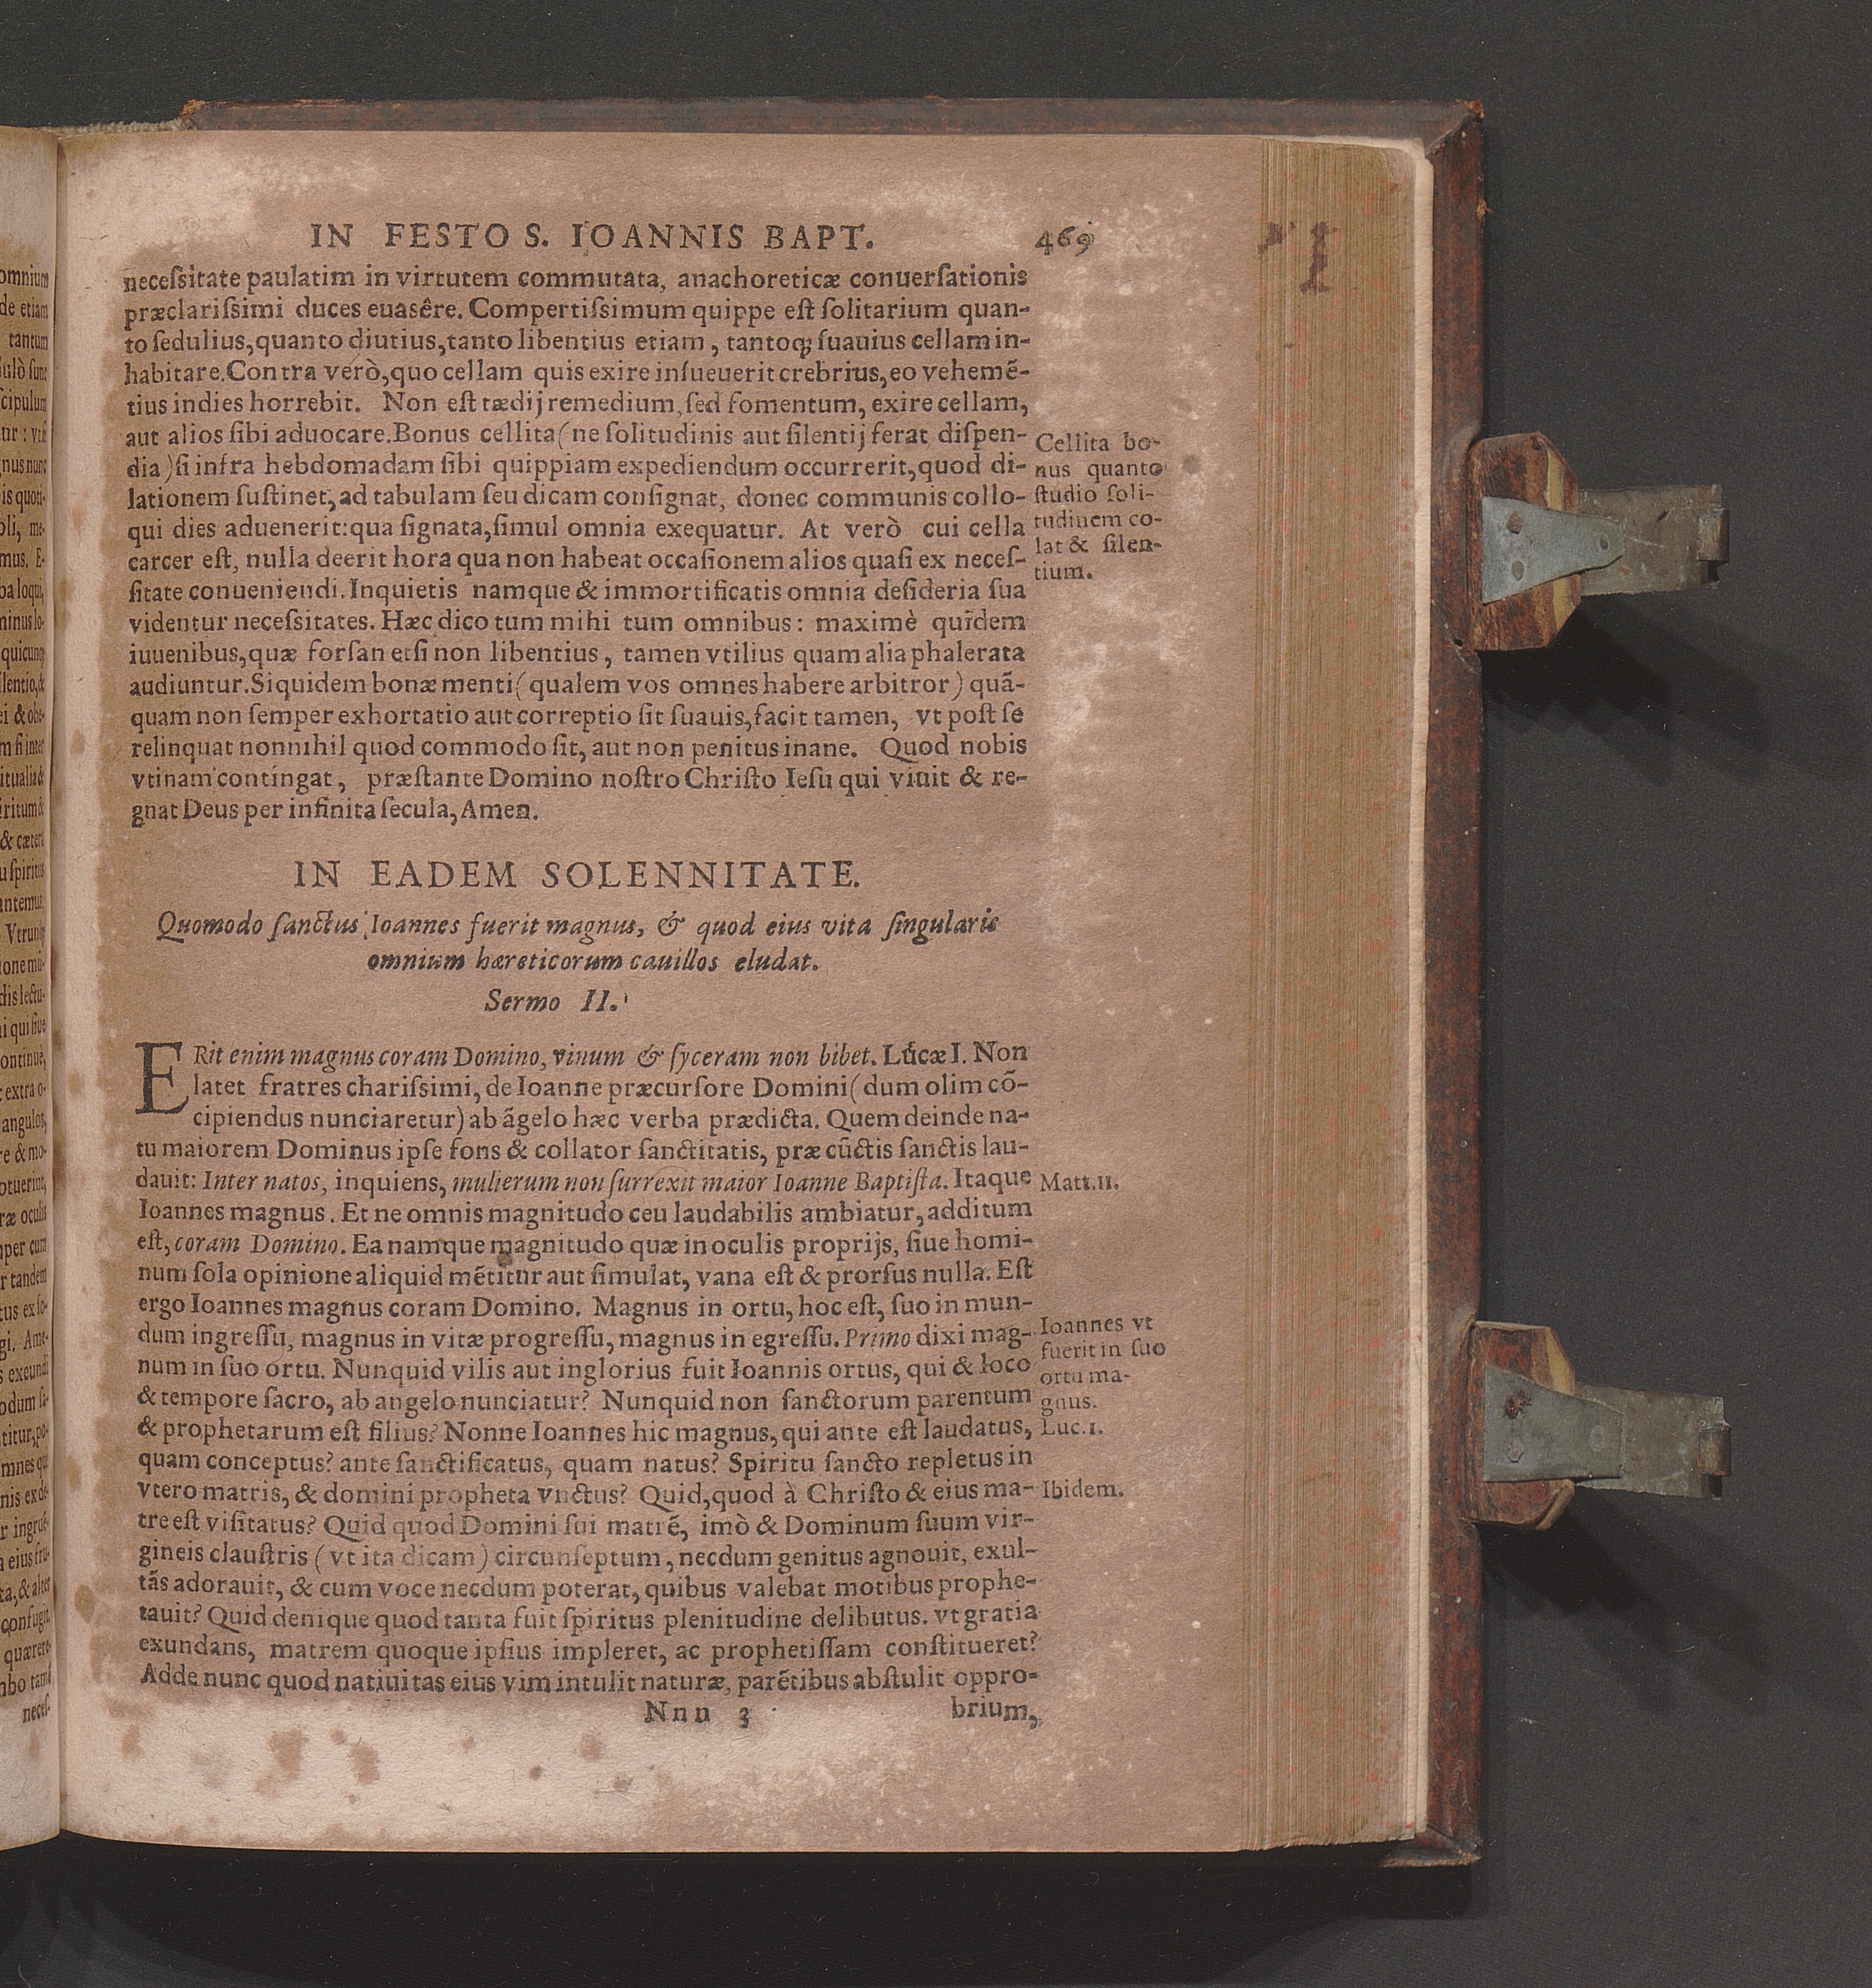 IN FESTO S. IOANNIS BAPT. 469
neceſsitate paulatim in virtutem commutata, anachoreticæ conuerſationis
præclariſsimi duces euasêre. Compertiſsimum quippe eſt ſolitarium quan-
to ſedulius, quanto diutius, tanto libentius etiam, tantoq; ſuauius cellam in-
habitare. Contra verò, quo cellam quis exire inſueuerit crebrius, eo vehemẽ-
tius indies horrebit. Non eſt tædij remedium, ſed fomentum, exire cellam,
aut alios ſibi aduocare. Bonus cellita (ne ſolitudinis aut ſilentij ferat diſpen-
dia) ſi infra hebdomadam ſibi quippiam expediendum occurrerit, quod di-
lationem ſuſtinet, ad tabulam ſeu dicam conſignat, donec communis collo-
qui dies aduenerit: qua ſignata, ſimul omnia exequatur. At verò cui cella
carcer eſt, nulla deerit hora qua non habeat occaſionem alios quaſi ex neceſ-
ſitate conueniendi. Inquietis namque & immortificatis omnia deſideria ſua
videntur neceſsitates. Hæc dico tum mihi tum omnibus: maximè quidem
iuuenibus, quæ forſan etſi non libentius, tamen vtilius quam alia phalerata
audiuntur. Siquidem bonæ menti (qualem vos omnes habere arbitror) quã-
quam non ſemper exhortatio aut correptio ſit ſuauis, facit tamen, vt poſt ſe
relinquat nonnihil quod commodo ſit, aut non penitus inane. Quod nobis
vtinam contingat, præſtante Domino noſtro Chriſto Ieſu qui viuit & re-
gnat Deus per infinita ſecula, Amen.
Cellita bo-
nus quanto
ſtudio ſoli-
tudinem co-
lat & ſilen-
tium.
IN EADEM SOLENNITATE.
Quomodo ſanctus Ioannes fuerit magnus, & quod eius vita ſingularis
omnium hæreticorum cauillos eludat.
Sermo II.
ERit enim magnus coram Domino, vinum & ſyceram non bibet. Lucæ I. Non
latet fratres chariſsimi, de Ioanne præcurſore Domini (dum olim cõ-
cipiendus nunciaretur) ab ãgelo hæc verba prædicta. Quem deinde na-
tu maiorem Dominus ipſe fons & collator ſanctitatis, præ cũctis ſanctis lau-
dauit: Inter natos, inquiens, mulierum non ſurrexit maior Ioanne Baptiſta. Itaque
Ioannes magnus. Et ne omnis magnitudo ceu laudabilis ambiatur, additum
eſt, coram Domino. Ea namque magnitudo quæ in oculis proprijs, ſiue homi-
num ſola opinione aliquid mẽtitur aut ſimulat, vana eſt & prorſus nulla. Eſt
ergo Ioannes magnus coram Domino. Magnus in ortu, hoc eſt, ſuo in mun-
dum ingreſſu, magnus in vitæ progreſſu, magnus in egreſſu. Primo dixi mag-
num in ſuo ortu. Nunquid vilis aut inglorius fuit Ioannis ortus, qui & loco
& tempore ſacro, ab angelo nunciatur? Nunquid non ſanctorum parentum
& prophetarum eſt filius? Nonne Ioannes hic magnus, qui ante eſt laudatus,
quam conceptus? ante ſanctificatus, quam natus? Spiritu ſancto repletus in
vtero matris, & domini propheta vnctus? Quid, quod à Chriſto & eius ma-
tre eſt viſitatus? Quid quod Domini ſui matrẽ, imò & Dominum ſuum vir-
gineis clauſtris (vt ita dicam) circunſeptum, necdum genitus agnouit, exul-
tãs adorauit, & cum voce necdum poterat, quibus valebat motibus prophe-
tauit? Quid denique quod tanta fuit ſpiritus plenitudine delibutus. vt gratia
exundans, matrem quoque ipſius impleret, ac prophetiſſam conſtitueret?
Adde nunc quod natiuitas eius vim intulit naturæ, parẽtibus abſtulit oppro-
Matt.11.
Ioannes vt
fuerit in ſuo
ortu ma-
gnus.
Luc.1.
Ibidem.
Nnn 3 brium,